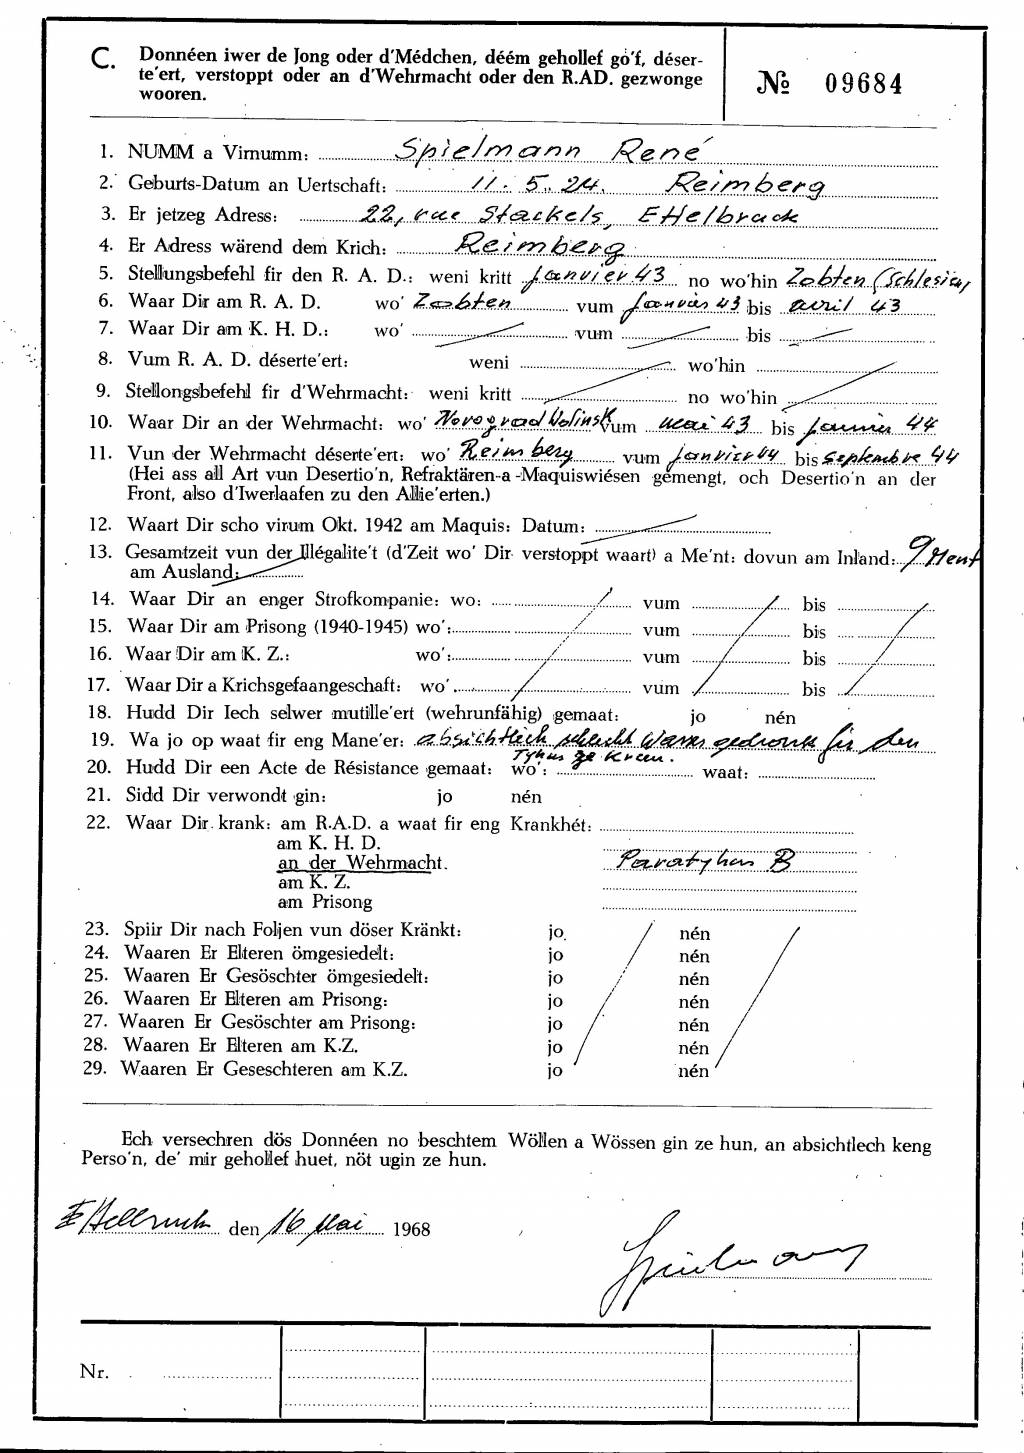 C. Donnéen iwer de Jong oder d'Médchen, déém gehollef gó'f, déser-
te'ert, verstoppt oder an d'Wehrmacht oder den R.AD. gezwonge
wooren.
№ 09684
1. NUMM a Virnumm: Spielmann René
2. Geburts-Datum an Uertschaft: 11. 5. 24. Reimberg
3. Er jetzeg Adress: 22, rue Stackels, Ettelbruck
4. Er Adress wärend dem Krich: Reimberg
5. Stellungsbefehl fir den R. A. D.: weni kritt Janvier 43 no wo'hin Zobten (Schlesien)
6. Waar Dir am R. A. D. wo' Zobten vum Janvier 43 bis avril 43
7. Waar Dir am K. H. D.: wo' vum bis
8. Vum R. A. D. déserte'ert: weni wo'hin
9. Stellongsbefehl fir d'Wehrmacht: weni kritt no wo'hin
10. Waar Dir an der Wehrmacht: wo' Novograd Wolinsk vum mai 43 bis Janvier 44
11. Vun der Wehrmacht déserte'ert: wo' Reimberg vum Janvier 44 bis septembre 44
(Hei ass all Art vun Desertio'n, Refraktären-a -Maquiswiésen gemengt, och Desertio'n an der
Front, also d'Iwerlaafen zu den Allie'erten.)
12. Waart Dir scho virum Okt. 1942 am Maquis: Datum:
13. Gesamtzeit vun der Illégalite't (d'Zeit wo' Dir verstoppt waart) a Me'nt: dovun am Inland: 9 Ment
am Ausland:
14. Waar Dir an enger Strofkompanie: wo: vum bis
15. Waar Dir am Prisong (1940-1945) wo': vum bis
16. Waar Dir am K. Z.: wo': vum bis
17. Waar Dir a Krichsgefaangeschaft: wo' vum bis
18. Hudd Dir Iech selwer mutille'ert (wehrunfähig) gemaat: jo nén
19. Wa jo op waat fir eng Mane'er: absichtlech schlecht Wasser gedronk fir den
Typhus ze kréen.
20. Hudd Dir een Acte de Résistance gemaat: wo': waat:
21. Sidd Dir verwondt gin: jo nén
22. Waar Dir krank: am R.A.D. a waat fir eng Krankhét:
am K. H. D.
an der Wehrmacht. Paratyhus B
am K. Z.
am Prisong
23. Spiir Dir nach Foljen vun döser Kränkt: jo nén
24. Waaren Er Elteren ömgesiedelt: jo nén
25. Waaren Er Gesöschter ömgesiedelt: jo nén
26. Waaren Er Elteren am Prisong: jo nén
27. Waaren Er Gesöschter am Prisong: jo nén
28. Waaren Er Elteren am K.Z. jo nén
29. Waaren Er Geseschteren am K.Z. jo nén
Ech versechren dös Donnéen no beschtem Wöllen a Wössen gin ze hun, an absichtlech keng
Perso'n, de' mir gehollef huet, nöt ugin ze hun.
Ettelbruck den 16 Mai 1968
Spielmann
Nr.